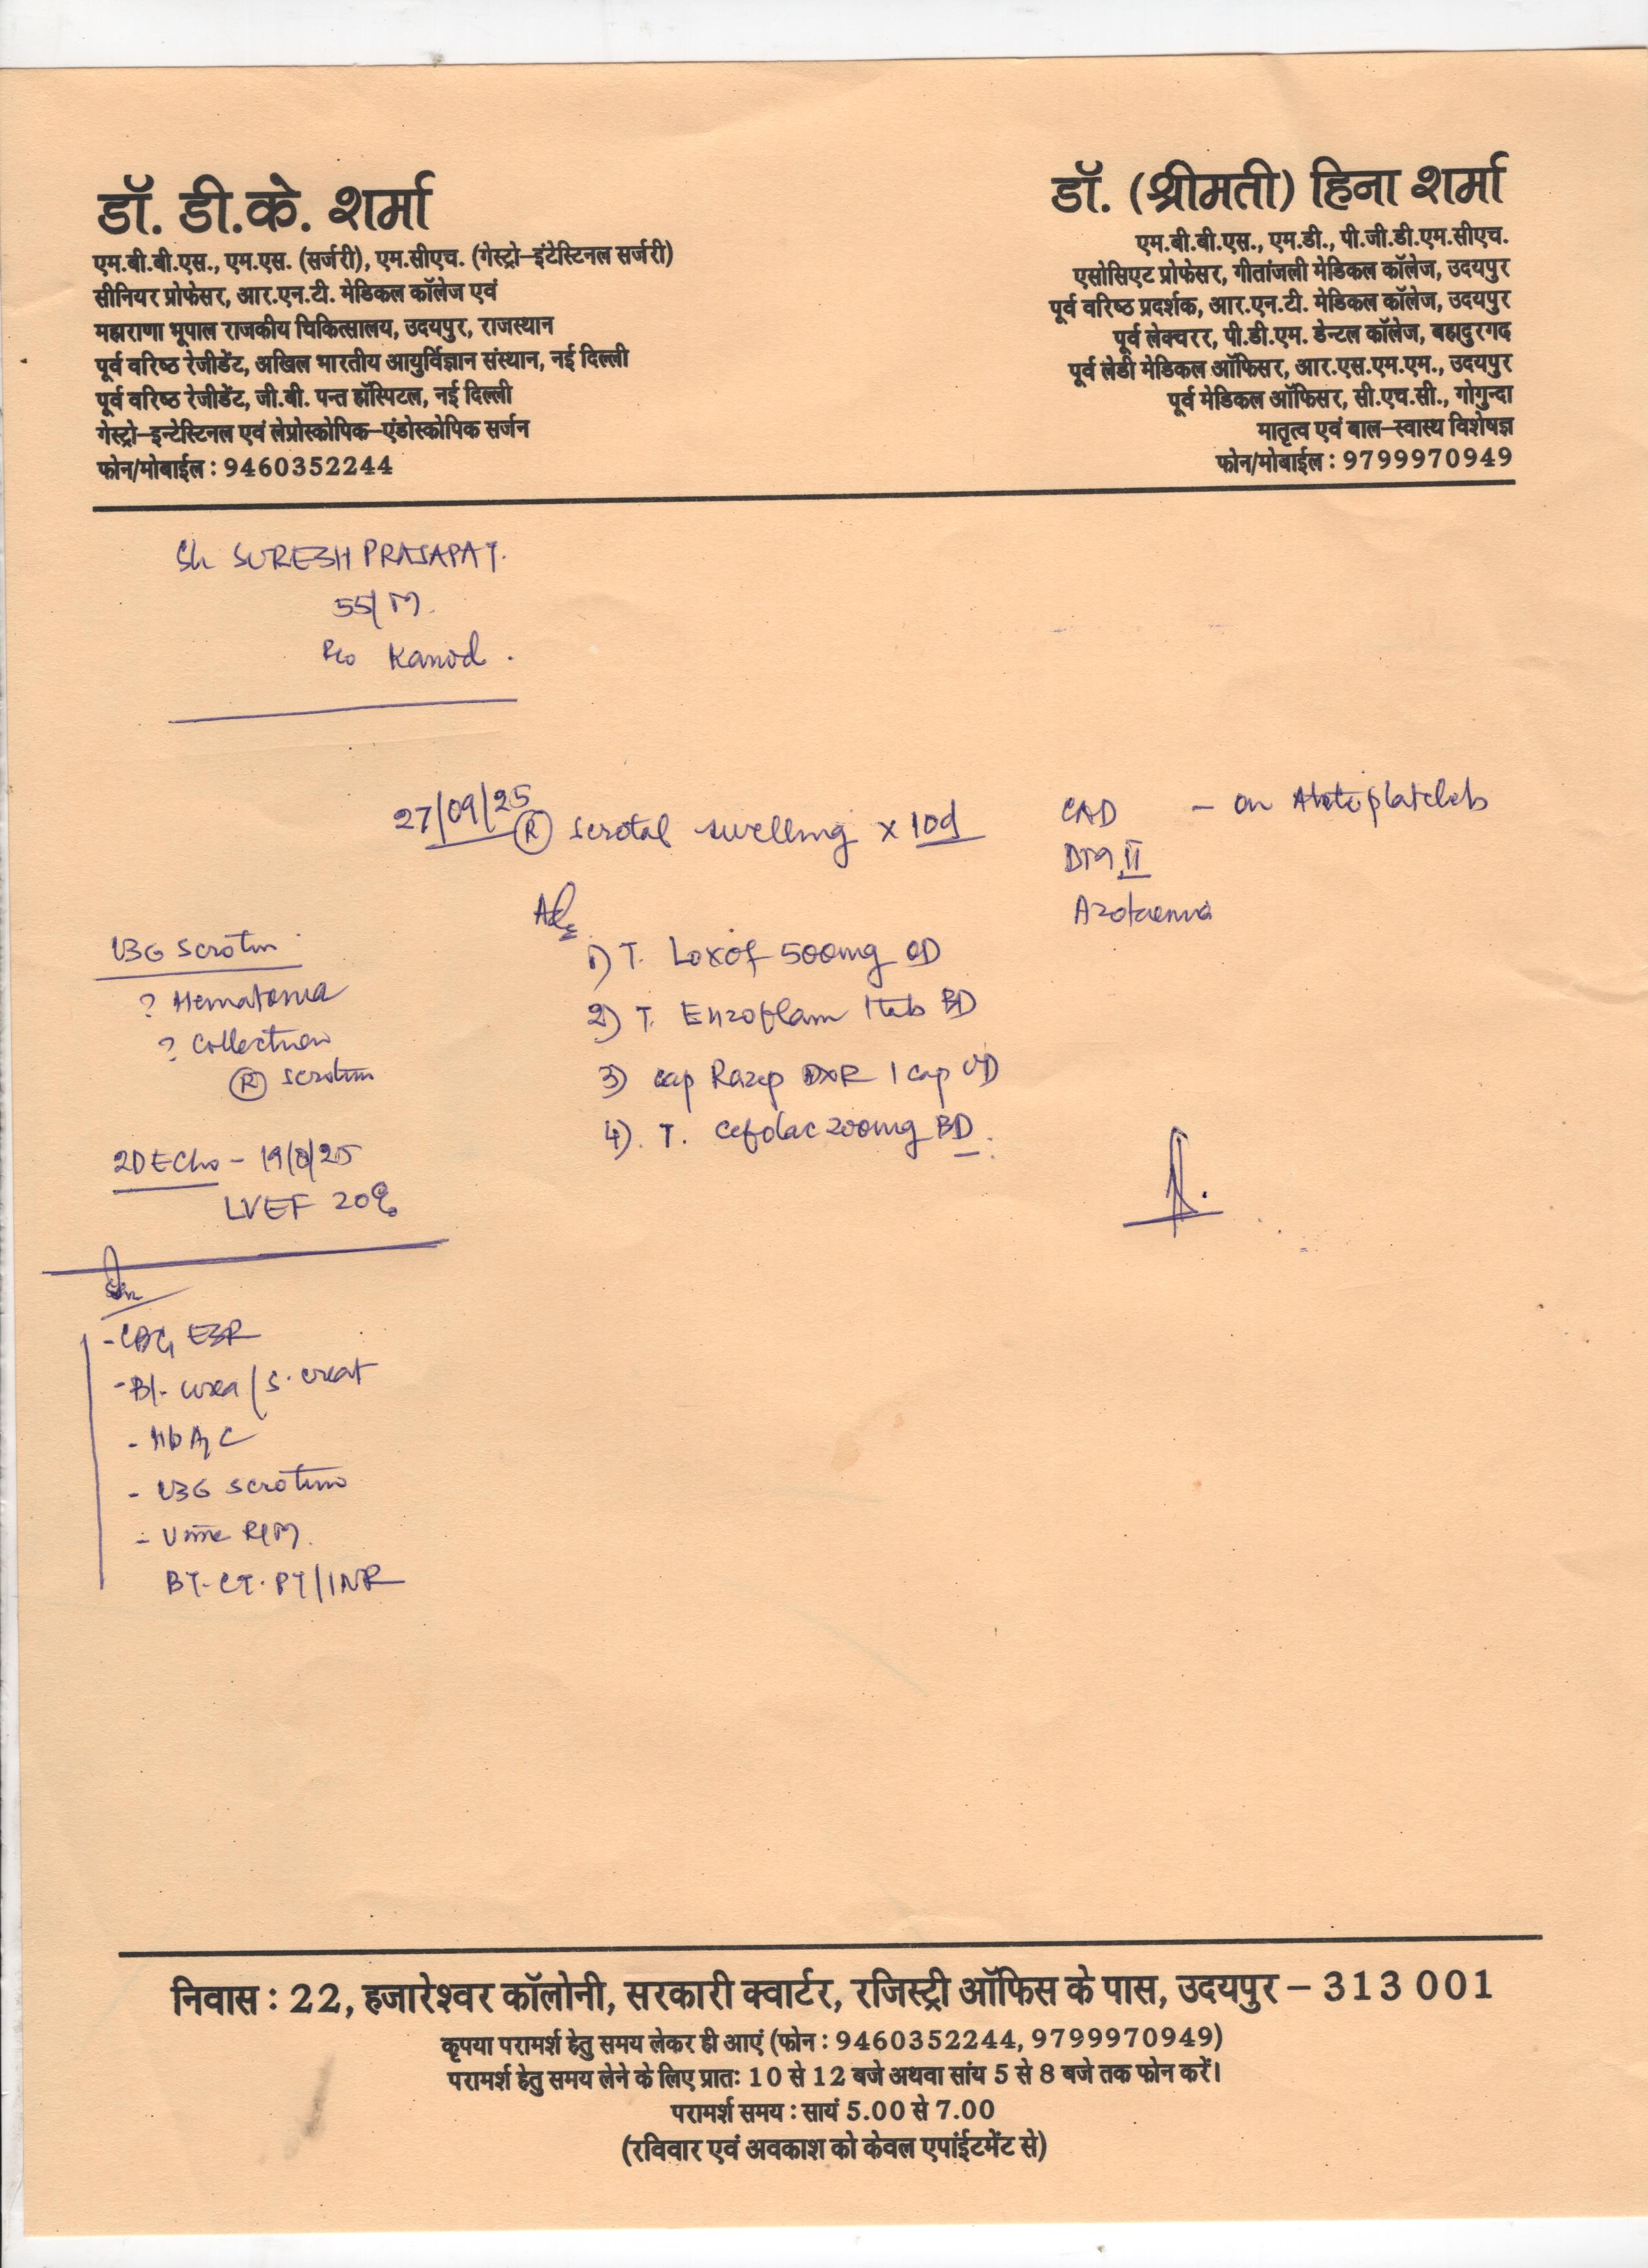 डॉ. डी.के. शर्मा
एम.बी.बी.एस., एम.एस. (सर्जरी), एम.सीएच. (गेस्ट्रो–इंटेस्टिनल सर्जरी)
सीनियर प्रोफेसर, आर.एन.टी. मेडिकल कॉलेज एवं
महाराणा भूपाल राजकीय चिकित्सालय, उदयपुर, राजस्थान
पूर्व वरिष्ठ रेजीडेंट, अखिल भारतीय आयुर्विज्ञान संस्थान, नई दिल्ली
पूर्व वरिष्ठ रेजीडेंट, जी.बी. पन्त हॉस्पिटल, नई दिल्ली
गेस्ट्रो–इन्टेस्टिनल एवं लेप्रोस्कोपिक–एंडोस्कोपिक सर्जन
फोन/मोबाईल : 9460352244
डॉ. (श्रीमती) हिना शर्मा
एम.बी.बी.एस., एम.डी., पी.जी.डी.एम.सीएच.
एसोसिएट प्रोफेसर, गीतांजली मेडिकल कॉलेज, उदयपुर
पूर्व वरिष्ठ प्रदर्शक, आर.एन.टी. मेडिकल कॉलेज, उदयपुर
पूर्व लेक्चरर, पी.डी.एम. डेन्टल कॉलेज, बहादुरगढ
पूर्व लेडी मेडिकल ऑफिसर, आर.एस.एम.एम., उदयपुर
पूर्व मेडिकल ऑफिसर, सी.एच.सी., गोगुन्दा
मातृत्व एवं बाल–स्वास्थ विशेषज्ञ
फोन/मोबाईल : 9799970949
Sh SURESH PRAJAPAT.
55/M.
R/o Kanod.
27/09/25 (R) scrotal swelling x 10d
CAD – on Antiplatelets
DM II
Azotaemia
Adv
1) T. Loxof 500mg OD
2) T. Enzoflam 1tab BD
3) cap Razep DXR 1 cap OD
4). T. Cefolac 200mg BD.
USG Scrotum
? Hematoma
? Collection
(R) scrotum
2D Echo – 19/8/25
LVEF 20%
- CBC, ESR
- Bl. urea / S. creat
- HbA1C
- USG scrotum
- Urine R/M.
BT-CT. PT/INR
निवास : 22, हजारेश्वर कॉलोनी, सरकारी क्वार्टर, रजिस्ट्री ऑफिस के पास, उदयपुर – 313 001
कृपया परामर्श हेतु समय लेकर ही आएं (फोन : 9460352244, 9799970949)
परामर्श हेतु समय लेने के लिए प्रातः 10 से 12 बजे अथवा सांय 5 से 8 बजे तक फोन करें।
परामर्श समय : सायं 5.00 से 7.00
(रविवार एवं अवकाश को केवल एपांईटमेंट से)